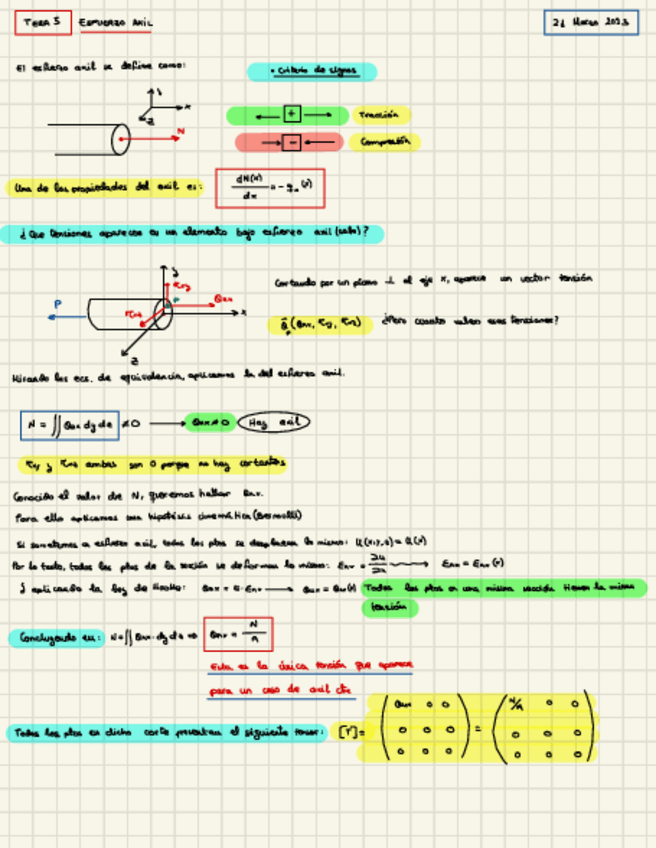 TEMA 5 ESFUERZO AXIL
21 Marzo 2023
El esfuerzo axil se define como:
• Criterio de signos
y
x
z
N
+ Tracción
- Compresión
Una de las propiedades del axil es: dN(x)/dx = -qx(x)
¿Que tensiones aparecen en un elemento bajo esfuerzo axil (solo)?
Cortando por un plano ⊥ al eje x, aparece un vector tensión
P
y
x
z
σxx
τxy
τxz
(σxx, τxy, τxz) ¿Pero cuanto valen esas tensiones?
Mirando las ecs. de equivalencia, aplicamos la del esfuerzo axil.
N = ∬ σxx dy dz ≠ 0 → σxx ≠ 0 Hay axil
τxy y τxz ambas son 0 porque no hay cortantes
Conocido el valor de N, queremos hallar σxx.
Para ello aplicamos una hipótesis cinemática (Bernoulli)
Si sometemos a esfuerzo axil, todos los ptos se desplazan lo mismo: u(x,y,z) = u(x)
Por lo tanto, todos los ptos de la sección se deforman lo mismo: εxx = ∂u/∂x → εxx = εxx(x)
y aplicando la ley de Hooke: σxx = E·εxx → σxx = σxx(x) Todos los ptos en una misma sección tienen la misma
tensión
Concluyendo en: N = ∬ σxx·dy dz ⇒ σxx = N/A
Esta es la única tensión que aparece
para un caso de axil cte
Todos los ptos en dicho corte presentan el siguiente tensor: [T] = (σxx 0 0 = (N/A 0 0
0 0 0 0 0 0
0 0 0) 0 0 0)